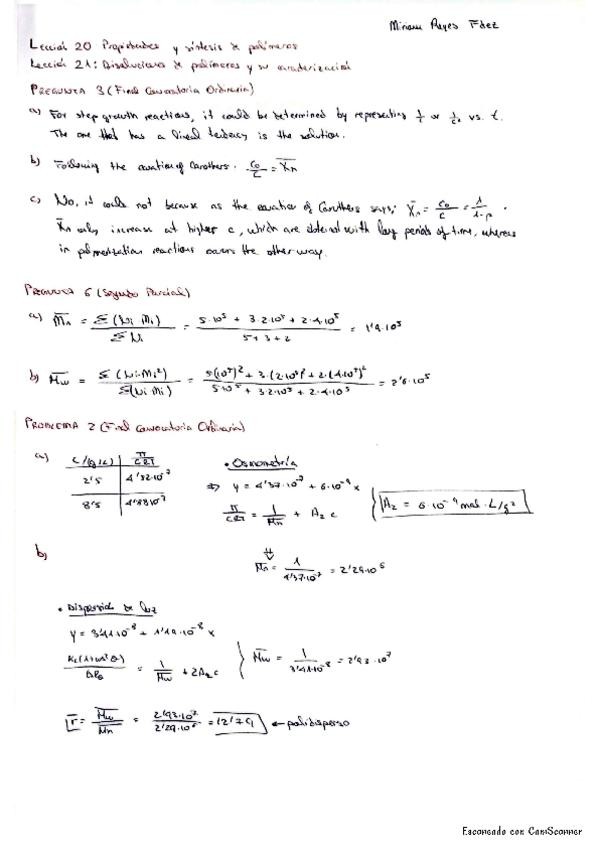 Miriam Reyes Fdez
Lección 20 Propiedades y síntesis de polímeros
Lección 21: Disoluciones de polímeros y su caracterización
PREGUNTA 3 (Final Convocatoria Ordinaria)
a) For step growth reactions, it could be determined by representing 1/c or 1/c² vs. t.
The one that has a lineal tendency is the solution.
b) Following the equation of Carothers. C₀/C = X̄n
c) No, it could not because as the equation of Carothers says; X̄n = C₀/C = 1/1-p.
X̄n only increase at higher c, which are obtained with long periods of time, whereas
in polimerization reactions occurs the other way.
PREGUNTA 6 (Segundo Parcial)
a) M̄n = Σ(Ni·Mi)/ΣNi = 5·10⁵ + 3·2·10⁵ + 2·4·10⁵/5+3+2 = 1'9·10⁵
b) M̄w = Σ(Ni·Mi²)/Σ(Ni·Mi) = 5(10⁵)² + 3·(2·10⁵)² + 2·(4·10⁵)²/5·10⁵ + 3·2·10⁵ + 2·4·10⁵ = 2'6·10⁵
PROBLEMA 2 (Final Convocatoria Ordinaria)
a)
C/(g/L) π/CRT
2'5 4'52·10⁻⁷
8'5 4'88·10⁻⁷
• Osmometría
⇒ y = 4'37·10⁻⁷ + 6·10⁻⁹ x
π/CRT = 1/M̄n + A₂ c
A₂ = 6·10⁻⁹ mol·L/g²
b)
⇓
M̄n = 1/4'37·10⁻⁷ = 2'29·10⁶
• Dispersión de luz
y = 3'41·10⁻⁸ + 1'19·10⁻⁸ x
Kc(1+cos²θ)/ΔRθ = 1/M̄w + 2A₂c
M̄w = 1/3'41·10⁻⁸ = 2'93·10⁷
r = M̄w/M̄n = 2'93·10⁷/2'29·10⁶ = 12'79 ← polidisperso
Escaneado con CamScanner